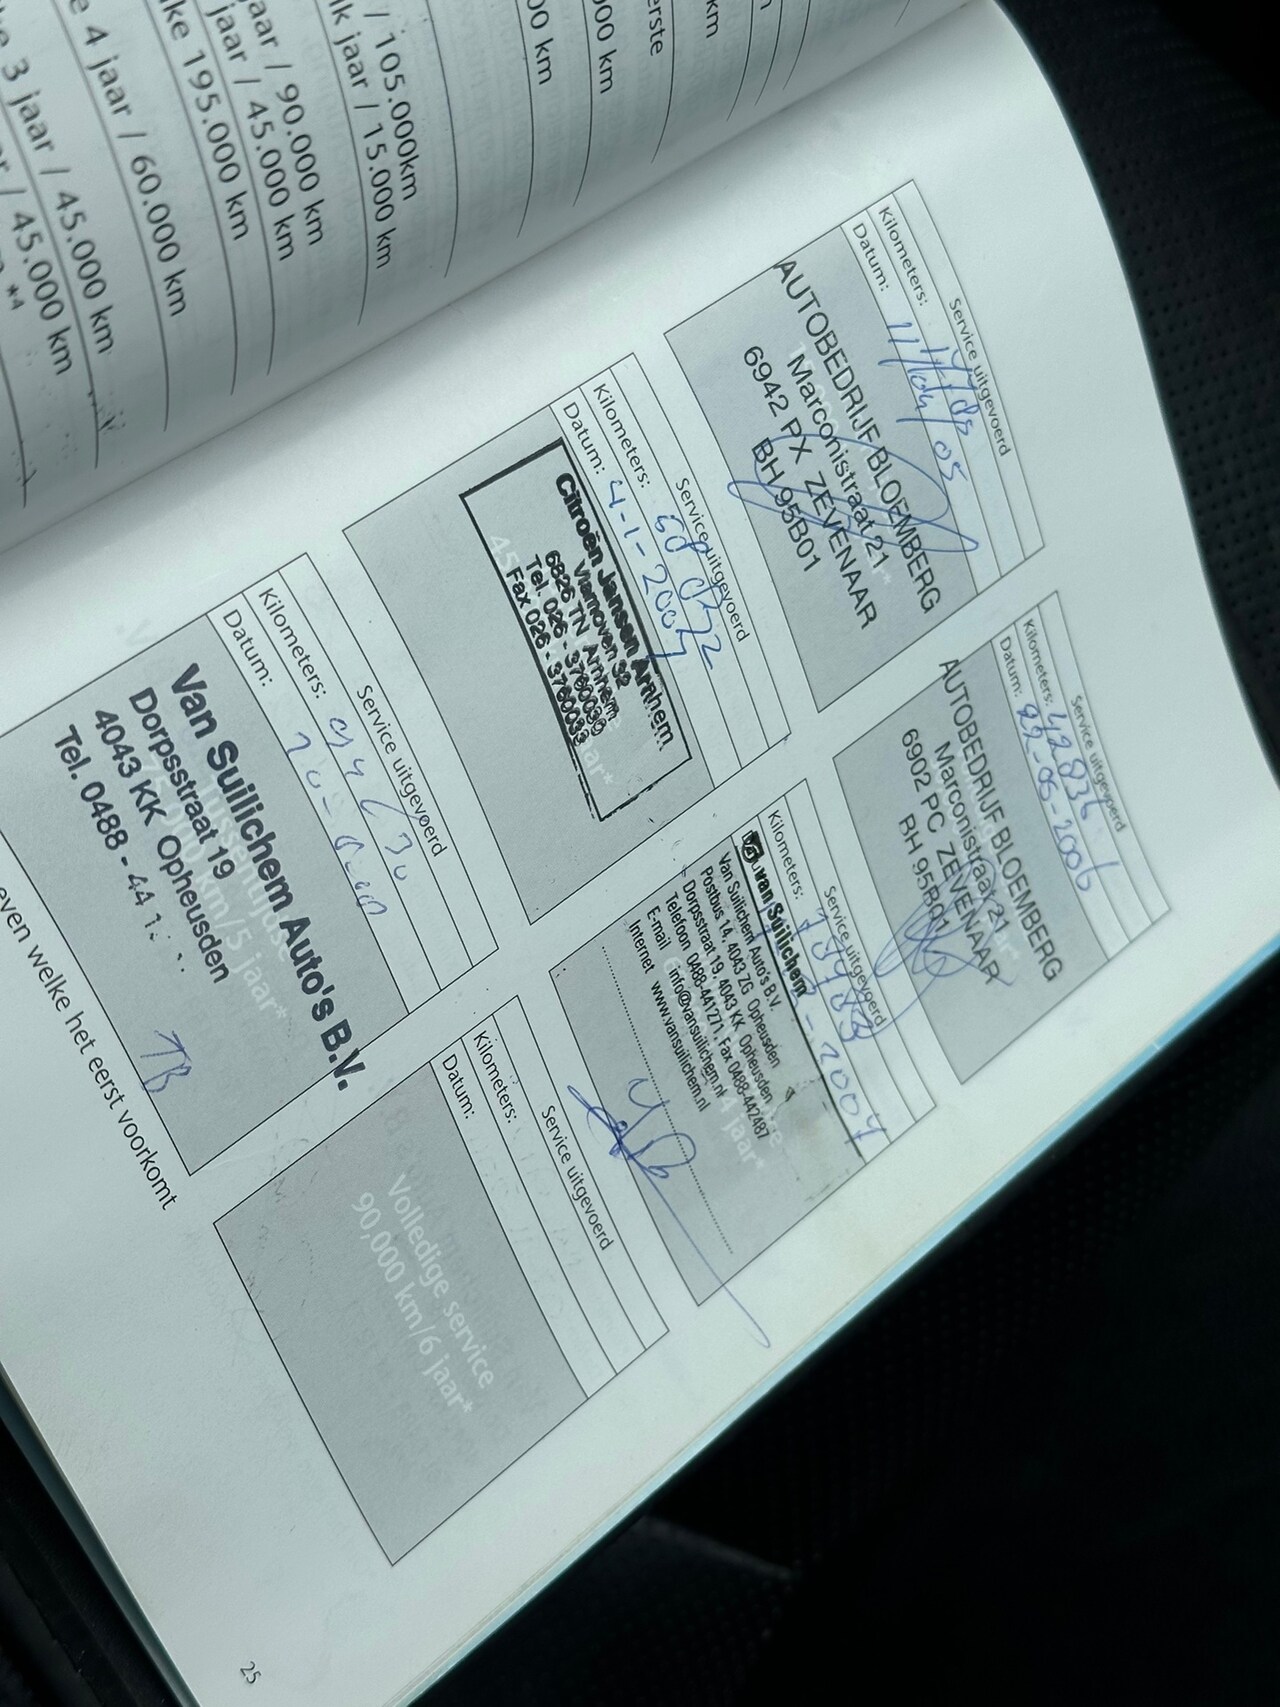 / 105.000km
k jaar / 15.000 km
jaar / 90.000 km
jaar / 45.000 km
ke 195.000 km
e 4 jaar / 60.000 km
e 3 jaar / 45.000 km
/ 45.000 km *4
00 km
00 km
erste
km
Service uitgevoerd
Kilometers:
Datum:
AUTOBEDRIJF BLOEMBERG
Marconistraat 21
6942 PX ZEVENAAR
BH 95B01
Service uitgevoerd
Kilometers: 42836
Datum: 22-05-2006
AUTOBEDRIJF BLOEMBERG
Marconistraat 21
6902 PC ZEVENAAR
BH 95B01
Service uitgevoerd
Kilometers:
Datum: 4-1-2007
Citroën Jansen Arnhem
Vlamoven 32
6826 TN Arnhem
Tel. 026 - 3760030
Fax 026 - 3760033
Service uitgevoerd
Kilometers:
van Suilichem
Van Suilichem Auto's B.V.
Postbus 14, 4043 ZG Opheusden
Dorpsstraat 19, 4043 KK Opheusden
Telefoon 0488-441271, Fax 0488-442487
E-mail info@vansuilichem.nl
Internet www.vansuilichem.nl
Service uitgevoerd
Kilometers:
Datum:
Van Suilichem Auto's B.V.
Dorpsstraat 19
4043 KK Opheusden
Tel. 0488 - 44 1
TB
Service uitgevoerd
Kilometers:
Datum:
Volledige service
90,000 km/6 jaar*
even welke het eerst voorkomt
25